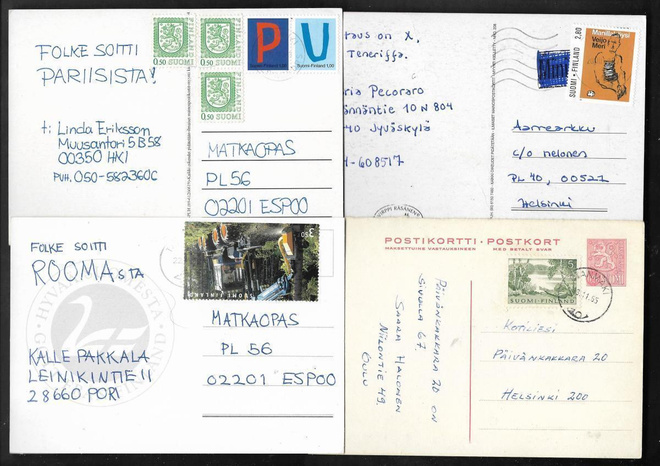 FOLKE SOITTI
PARIISISTA!
t: Linda Eriksson
Muusantori 5 B 58
00350 HKI
PUH. 050-582360C
0.50 SUOMI
FINLAND
0.50 SUOMI
FINLAND
0.50 SUOMI
FINLAND
P
Suomi Finland 1,00
U
Suomi Finland 1,00
MATKAOPAS
PL 56
02201 ESPOO
taus on X.
Teneriffa.
ria Pecoraro
ännäntie 10 N 804
40 Jyväskylä
1-608517
SUOMI • FINLAND 2,80
Manillaköysi
Veijo
Meri
Aarrearkku
c/o Nelonen
PL 40, 00521
Helsinki
FOLKE SOITTI
ROOMASTA
KALLE PAKKALA
LEINIKINTIE 11
28660 PORI
3,50
SUOMI FINLAND
MATKAOPAS
PL 56
02201 ESPOO
POSTIKORTTI - POSTKORT
MAKSETTUINE VASTAUKSINEEN
MED BETALT SVAR
SUOMI-FINLAND
PÄIVÄNKAKKARA 20 ON
SIVULLA 67.
SAARA HALONEN
OULU
KOTILIESI
PÄIVÄNKAKKARA 20
HELSINKI 200